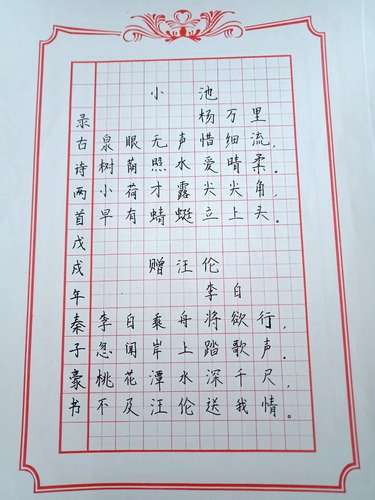 小池
杨万里
泉眼无声惜细流，
树荫照水爱晴柔。
小荷才露尖尖角，
早有蜻蜓立上头。
赠汪伦
李白
李白乘舟将欲行，
忽闻岸上踏歌声。
桃花潭水深千尺，
不及汪伦送我情。
录古诗两首戊戌年秦子豪书